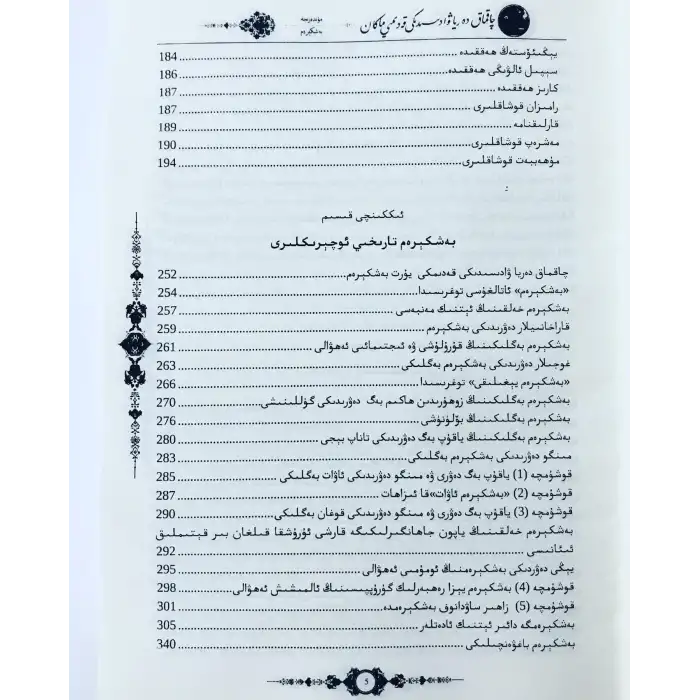 چاقماق دەرياۋادىسىدىكى قەدىمىي ماكان
مۇندەرىجە
بەشكېرەم
يېڭىئۆستەڭ ھەققىدە 184
سېپىل ئالۋىڭى ھەققىدە 186
كارىز ھەققىدە 187
رامىزان قوشاقلىرى 187
قارلىقنامە 189
مەشرەپ قوشاقلىرى 190
مۇھەببەت قوشاقلىرى 194
ئىككىنچى قىسىم
بەشكېرەم تارىخىي ئوچېرىكلىرى
چاقماق دەريا ۋادىسىدىكى قەدىمكى يۇرت بەشكېرەم 252
«بەشكېرەم» ئاتالغۇسى توغرىسىدا 254
بەشكېرەم خەلقىنىڭ ئېتنىك مەنبەسى 257
قاراخانىيلار دەۋرىدىكى بەشكېرەم 259
بەشكېرەم بەگلىكىنىڭ قۇرۇلۇشى ۋە ئىجتىمائىي ئەھۋالى 261
غوجىلار دەۋرىدىكى بەشكېرەم بەگلىكى 263
«بەشكېرەم يېغىلىقى» توغرىسىدا 266
بەشكېرەم بەگلىكىنىڭ زوھۇرىدىن ھاكىم بەگ دەۋرىدىكى گۈللىنىشى 270
بەشكېرەم بەگلىكىنىڭ بۆلۈنۈشى 276
بەشكېرەم بەگلىكىنىڭ ياقۇپ بەگ دەۋرىدىكى تاناپ بېجى 280
مىنگو دەۋرىدىكى بەشكېرەم بەگلىكى 283
قوشۇمچە (1) ياقۇپ بەگ دەۋرى ۋە مىنگو دەۋرىدىكى ئاۋات بەگلىكى 285
قوشۇمچە (2) «بەشكېرەم ئاۋات»قا ئىزاھات 287
قوشۇمچە (3) ياقۇپ بەگ دەۋرى ۋە مىنگو دەۋرىدىكى قوغان بەگلىكى 290
بەشكېرەم خەلقىنىڭ ياپون جاھانگىرلىكىگە قارشى ئۇرۇشقا قىلغان بىر قېتىملىق
ئىئانىسى 292
يېڭى دەۋردىكى بەشكېرەمنىڭ ئومۇمىي ئەھۋالى 295
قوشۇمچە (4) بەشكېرەم يېزا رەھبەرلىك گۇرۇپپىسىنىڭ ئالمىشىش ئەھۋالى 298
قوشۇمچە (5) زاھىر ساۋدانوف بەشكېرەمدە 301
بەشكېرەمگە دائىر ئېتنىك ئادەتلەر 305
بەشكېرەم باغۋەنچىلىكى 340
5